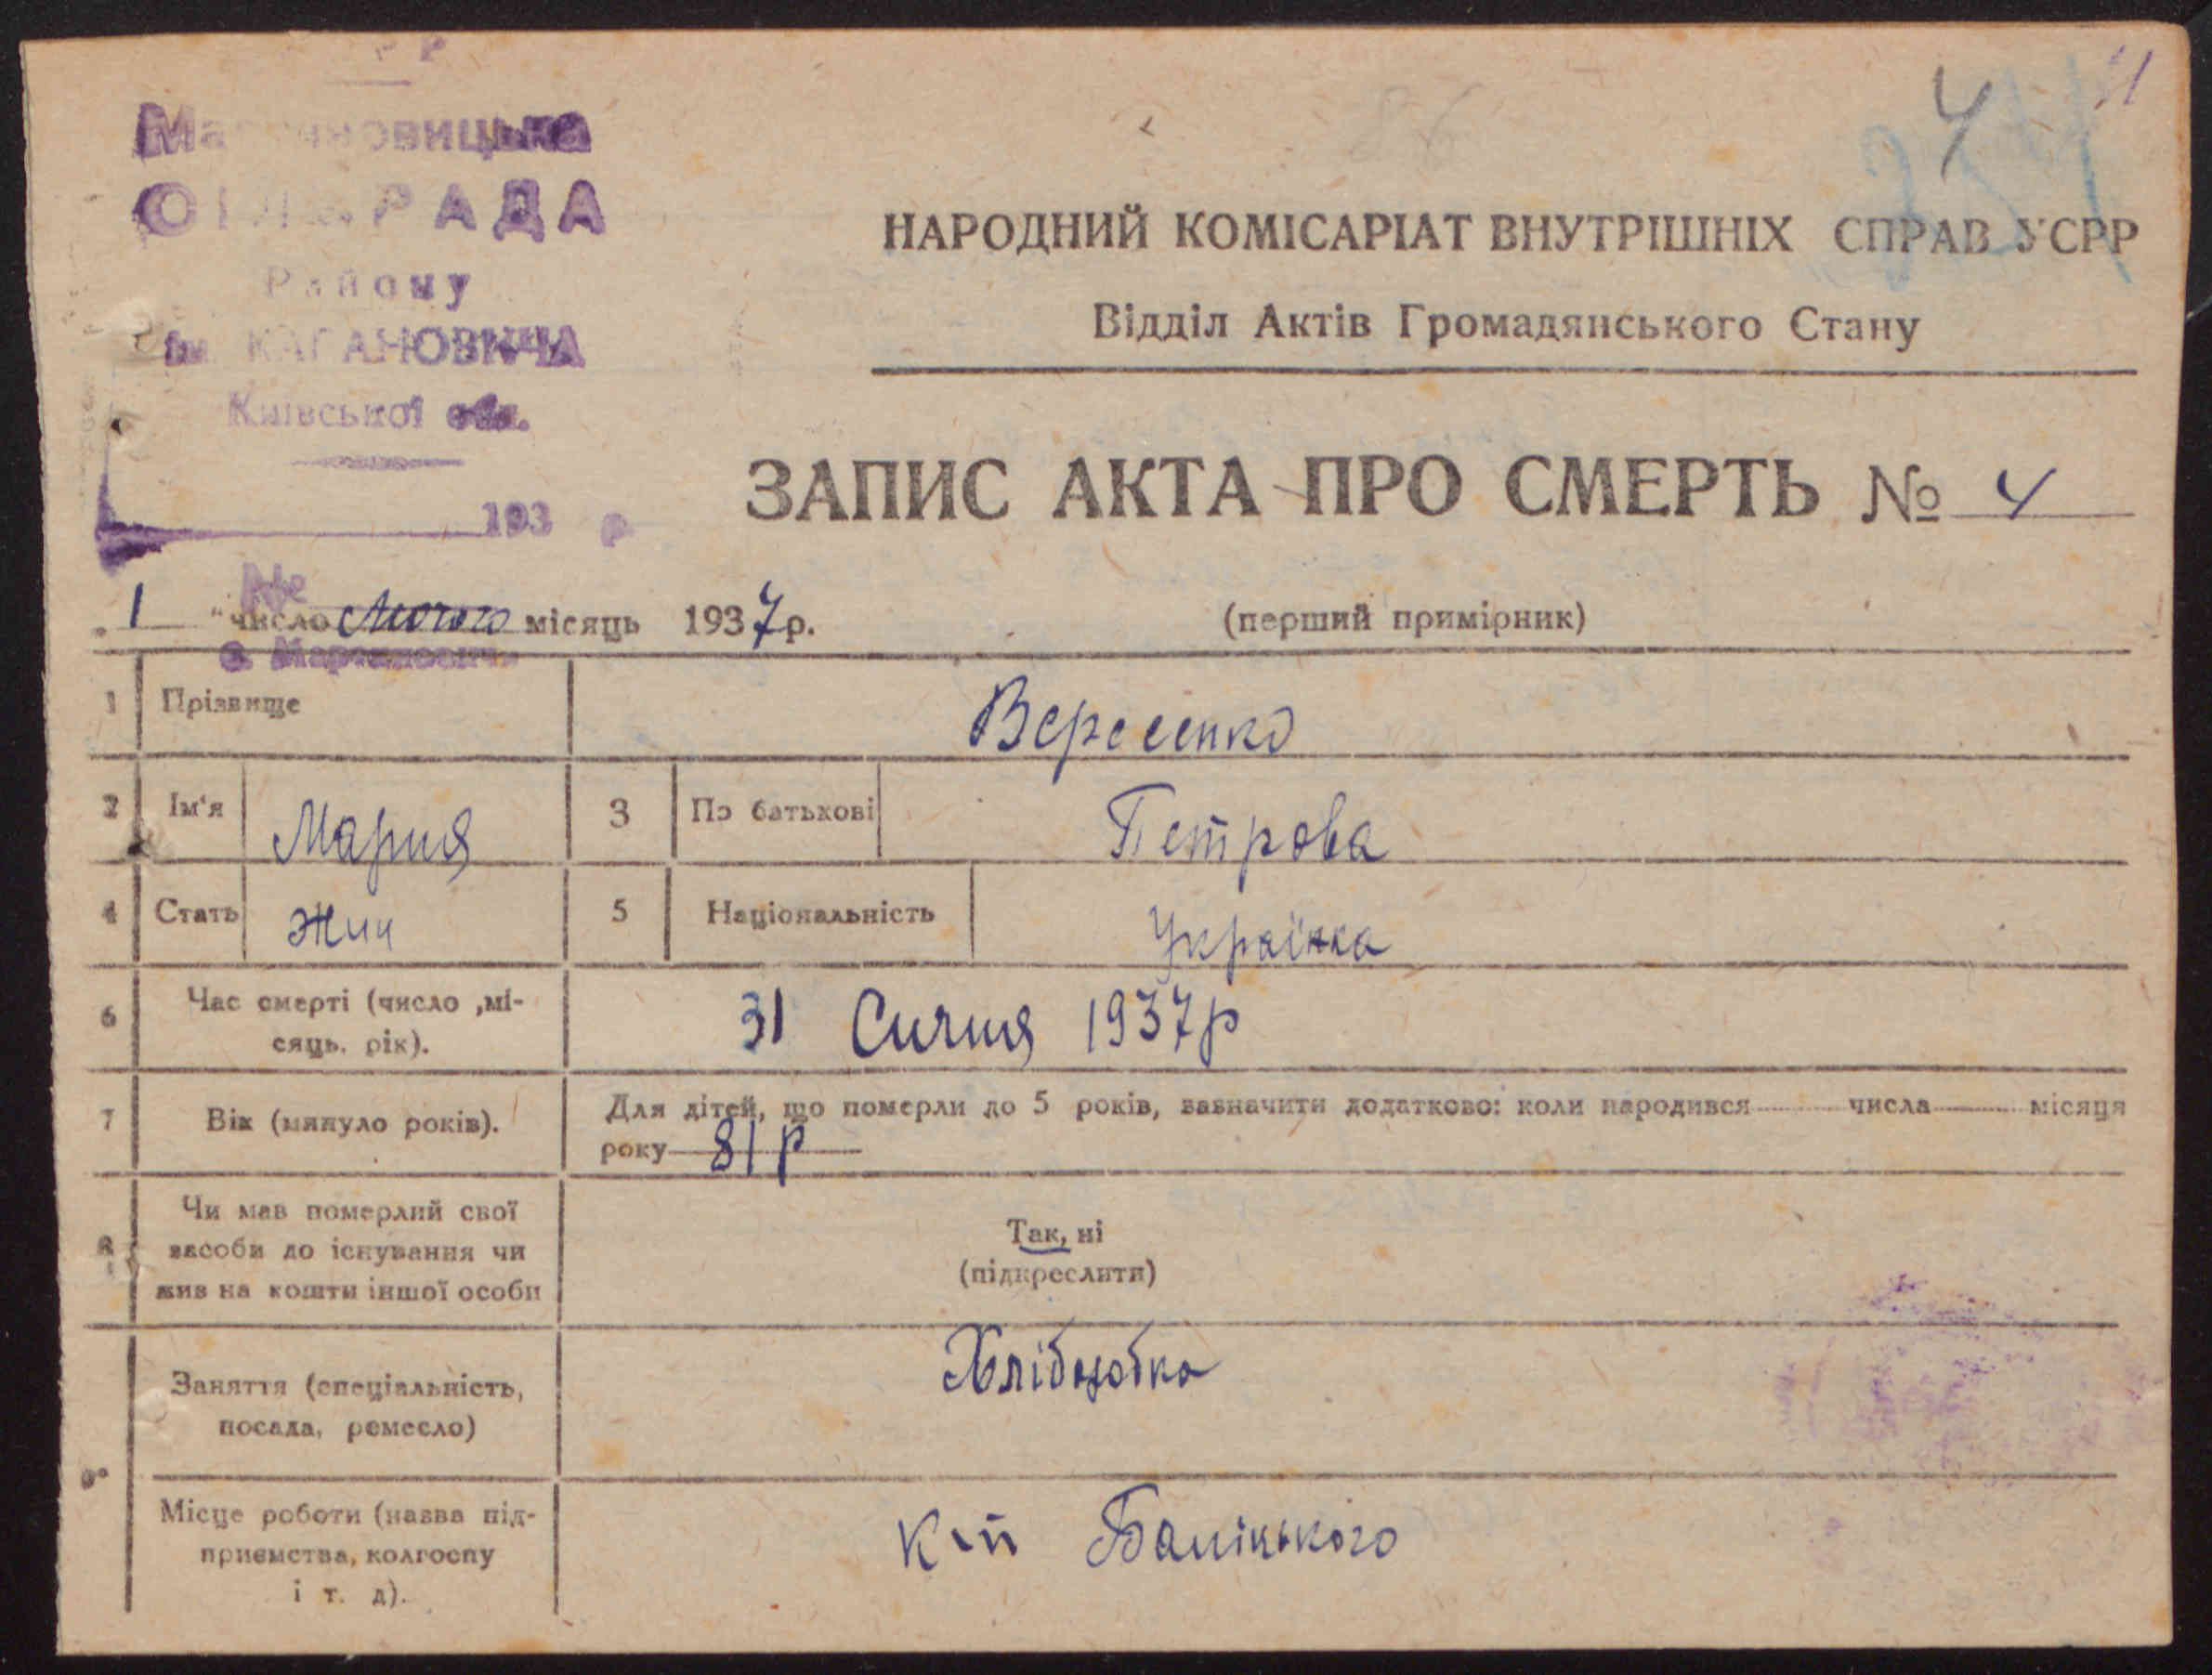 РАДА
Району
ім. КАГАНОВИЧА
Київської обл.
193 р.
№
4
НАРОДНИЙ КОМІСАРІАТ ВНУТРІШНІХ СПРАВ УСРР
Відділ Актів Громадянського Стану
ЗАПИС АКТА ПРО СМЕРТЬ № 4
"1" число Лютого місяць 1937р.
(перший примірник)
1 Прізвище Вересенко
2 Ім'я Мария 3 По батькові Петрова
4 Стать жин 5 Національність Українка
6 Час смерті (число ,мі-
сяць, рік). 31 Січня 1937р
7 Вік (минуло років). Для дітей, що померли до 5 років, зазначити додатково: коли народився числа місяця
року 81р
8 Чи мав померлий свої
засоби до існування чи
жив на кошти іншої особи
Так, ні
(підкреслити)
Заняття (спеціальність,
посада, ремесло)
Хліборобка
Місце роботи (назва під-
приємства, колгоспу
і т. д).
К-п